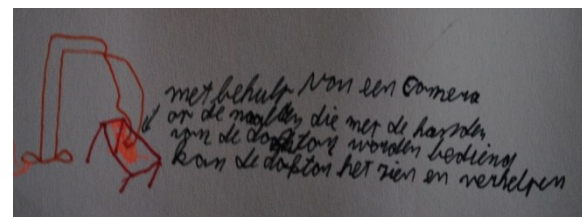 met behulp van een camera
op de naalden die met de handen
van de dokter worden bediend
kan de dokter het zien en verhelpen